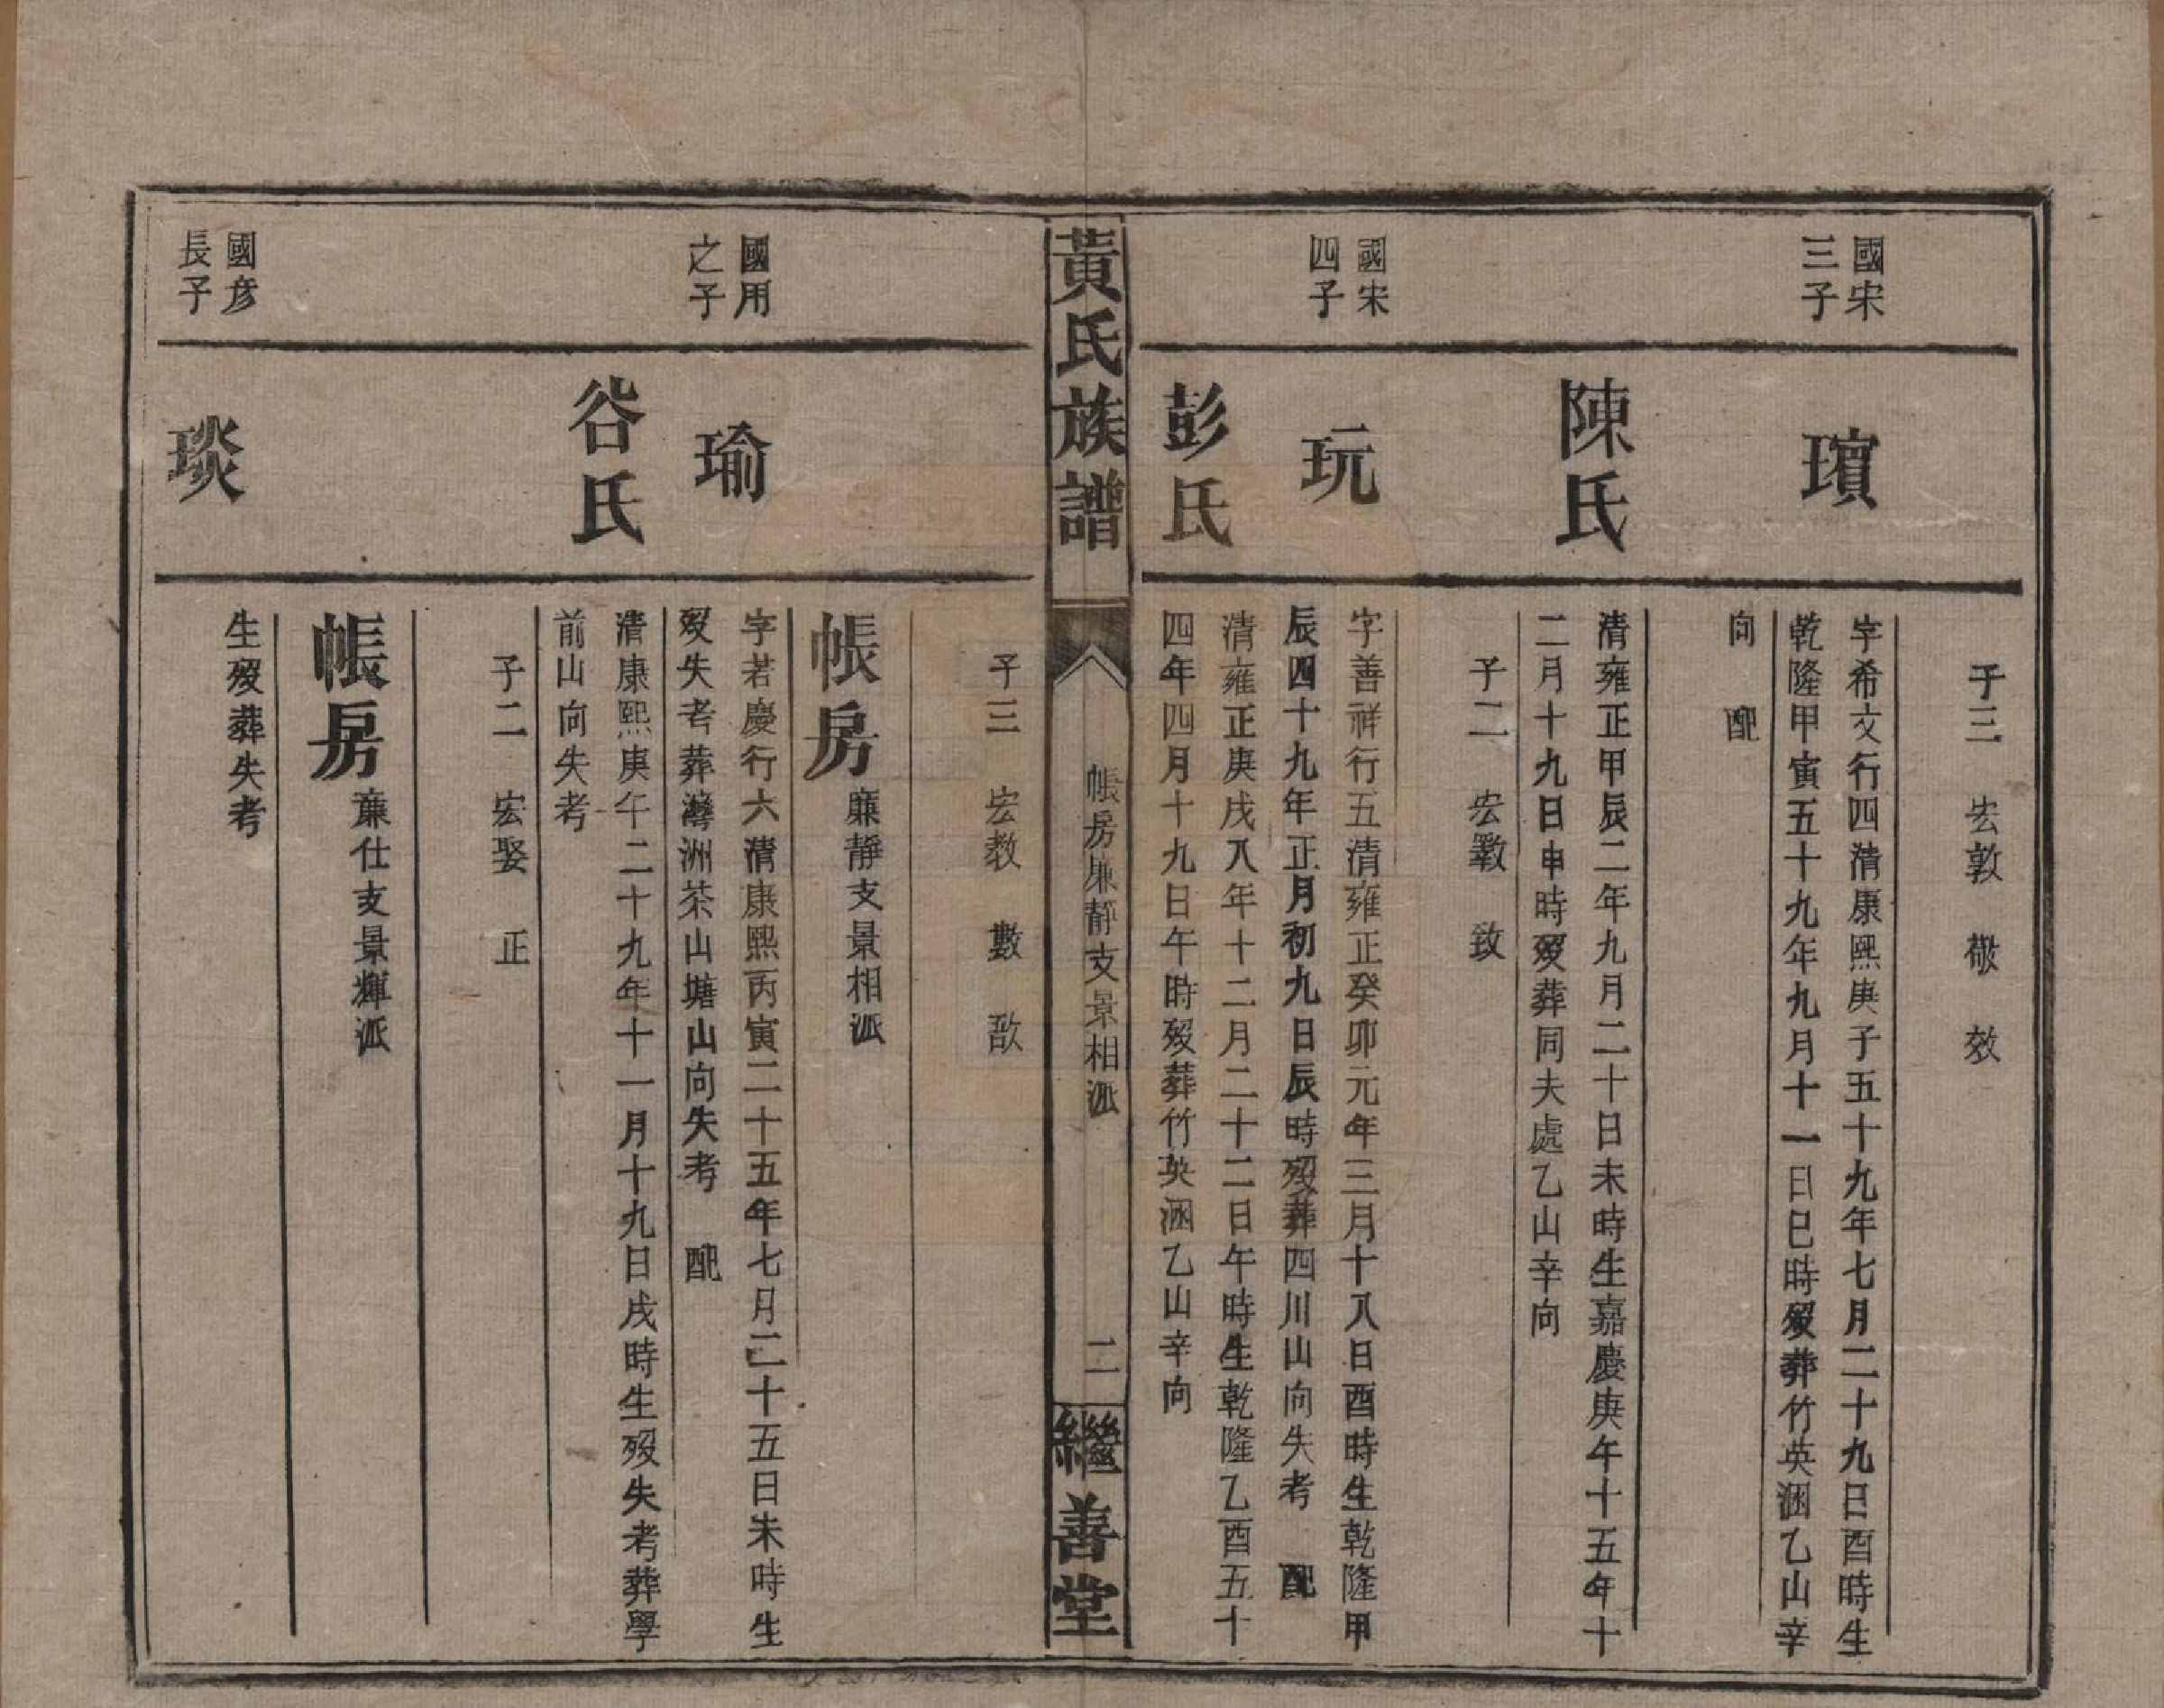 子三　宏敦　敬　效
國宋
三子
璸
字希文行四清康熙庚子五十九年七月二十九日酉時生
乾隆甲寅五十九年九月十一日巳時歿葬竹英涃乙山辛
向　配
陳氏
清雍正甲辰二年九月二十日未時生嘉慶庚午十五年十
二月十九日申時歿葬同夫處乙山辛向
子二　宏斁　致
國宋
四子
玩
字善祥行五清雍正癸卯元年三月十八日酉時生乾隆甲
辰四十九年正月初九日辰時歿葬四川山向失考　配
彭氏
清雍正庚戌八年十二月二十二日午時生乾隆乙酉五十
四年四月十九日午時歿葬竹英涃乙山辛向
黃氏族譜
帳房廉靜支景相派
二
繼善堂
子三　宏教　數　敔
帳房廉靜支景相派
國用
之子
瑜
字若慶行六清康熙丙寅二十五年七月二十五日未時生
歿失考葬灣洲茶山塘山向失考　配
谷氏
清康熙庚午二十九年十一月十九日戌時生歿失考葬學
前山向失考
子二　宏娶　正
帳房廉仕支景輝派
國彥
長子
琰
生歿葬失考